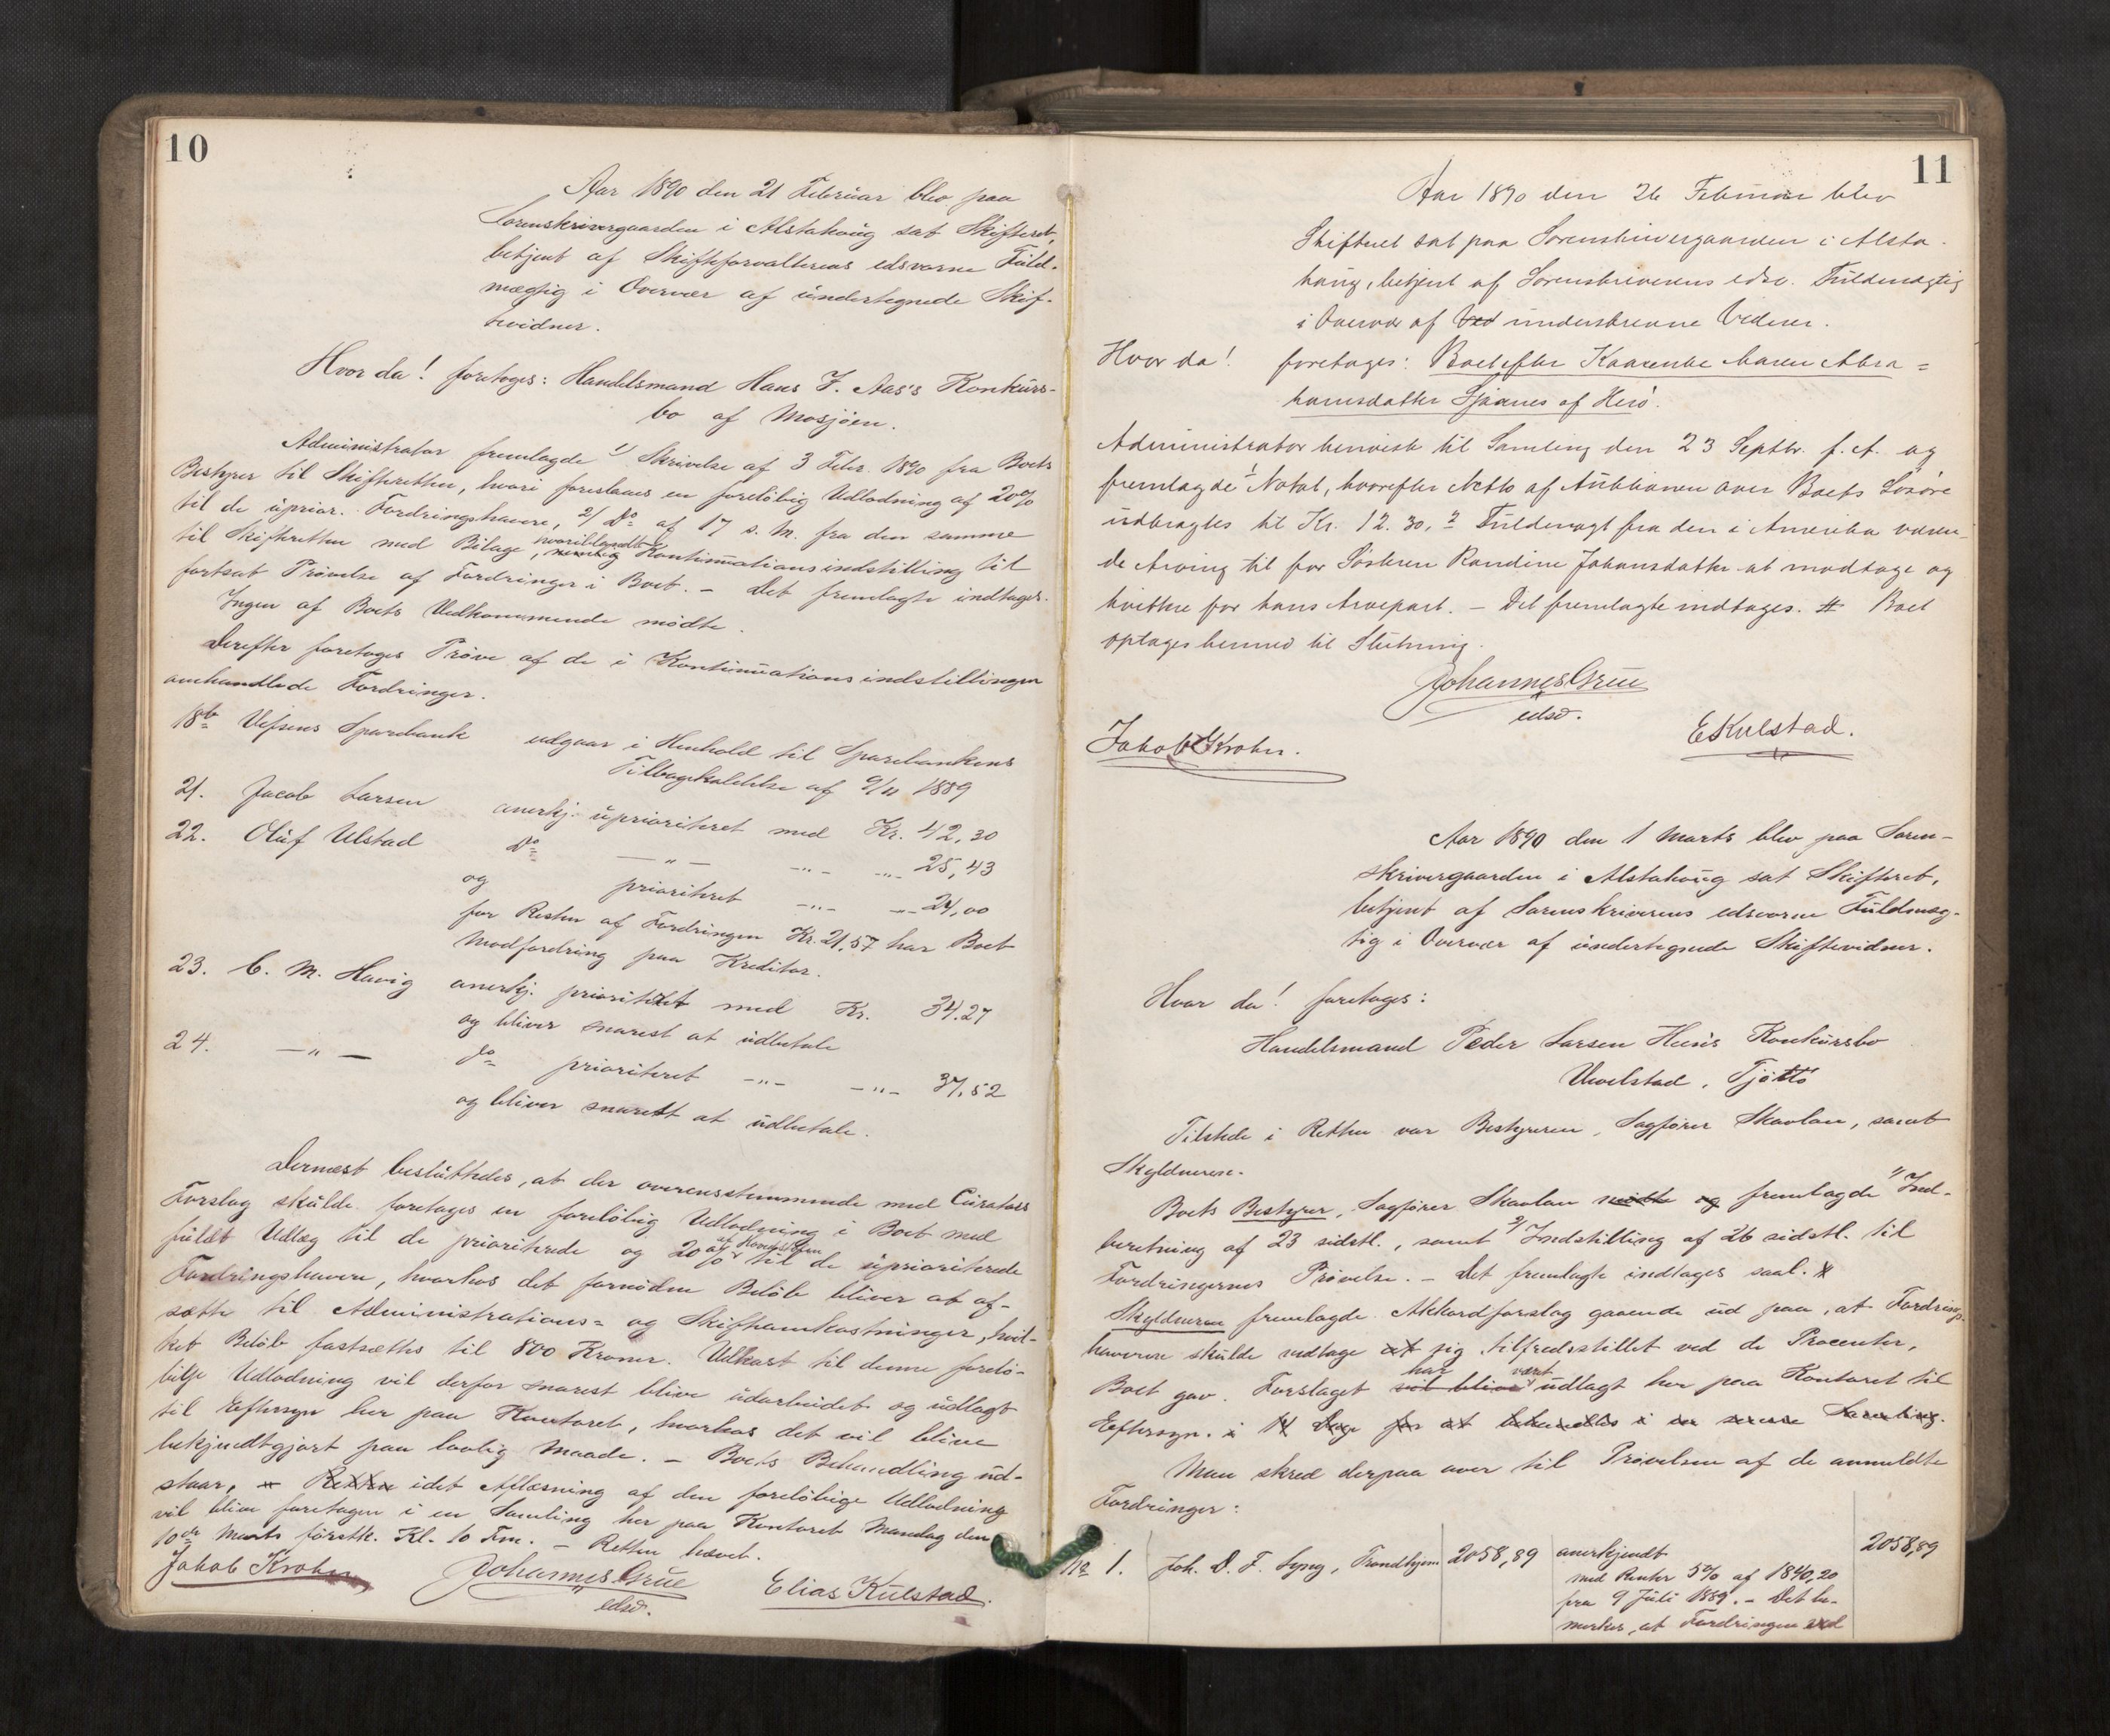 10
Aar 1890 den 21 Februar blev paa
Sorenskrivergaarden i Alstahoug sat Skifteret,
betjent af Skifteforvalterens edsvorne Fuld-
mægtig i Overvær af undertegnede Skif-
tevidner.
Hvor da! foretoges: Handelsmand Hans F. Aas's Konkurs-
bo af Mosjøen.
Administrator fremlagde 1/ Skrivelse af 3 Febr. 1890 fra Boets
Bestyrer til Skifteretten, hvori foreslaaes en foreløbig Udlodning af 20%
til de uprior. Fordringshavere, 2/ Do af 17 s. M. fra den samme
til Skifteretten med Bilage, hvoriblandt Kontinuationsindstilling til
fortsat Prøvelse af Fordringer i Boet. – Det fremlagte indtages.
Ingen af Boets Vedkommende mødte.
Derefter foretoges Prøve af de i Kontinuationsindstillingen
omhandlede Fordringer.
18b Vefsens Sparebank udgaar i Henhold til Sparebankens
Tilbagekaldelse af 9/11 1889
21. Jacob Larsen anerkj. uprioriteret med Kr. 42,30
22. Oluf Ulstad Do —„— -„- -„- 25,43
og prioriteret -„- -„- 24,00
for Resten af Fordringen Kr. 21,57 har Boet
Modfordring paa Kreditor.
23. C. M. Havig anerkj. prioritetet med Kr. 34.27
og bliver snarest at udbetale
24. —„— do prioriteret -„- -„- 37,52
og bliver snarest at udbetale.
Dernæst besluttedes, at der overensstemmende med Curators
Forslag skulde foretages en foreløbig Udlodning i Boet med
fuldt Udlæg til de prioriterede og 20% til de uprioriterede
Fordringshavere, hvorhos det fornødne Beløb bliver at af-
sætte til Administrations- og Skifteomkostninger, hvil-
ket Beløb fastsættes til 800 Kroner. Udkast til denne forelø-
bige Udlodning vil derfor snarest blive udarbeidet og udlagt
til Eftersyn her paa Kontoret, hvorhos det vil blive
bekjendtgjort paa lovlig Maade. – Boets Behandling ud-
staar, Retten idet Aflæsning af den foreløbige Udlodning
vil blive foretagen i en Samling her paa Kontoret Mandag den
10de Marts førstk. Kl. 10 Fm. – Retten hævet.
Jakob Krohn Johannes Grue Elias Kulstad.
edsv.
11
Aar 1890 den 26 Februar blev
Skifteret sat paa Sorenskrivergaarden i Alsta-
houg, betjent af Sorenskriverens edsv. Fuldmægtig
i Overvær af Ved underskrevne Vidner.
Hvor da! foretages: Boet efter Kaarenbe Maren Abra=
hamsdatter Sjaanes af Herø.
Administrator henviste til Samling den 23 Septbr. f. A. og
fremlagde 1 Notat, hvorefter Netto af Auktionen over Boets Løsøre
udbragtes til Kr. 12.30, 2 Fuldmagt fra den i Amerika væren-
de Arving til for Søsteren Randine Johansdatter at modtage og
kvittere for hans Arvepart. – Det fremlagte indtages. Boet
optages hermed til Slutning.
Johannes Grue
edsv.
Jakob Krohn. E Kulstad.
Aar 1890 den 1 Marts blev paa Soren-
skrivergaarden i Alstahoug sat Skifteret,
betjent af Sorenskriverens edsvorne Fuldmæg-
tig i Overvær af undertegnede Skiftevidner.
Hvor da! foretoges:
Handelsmand Peder Larsen Huus Konkursbo
Tjøttø
Tilstede i Retten var Bestyreren, Sagfører Skavlan, samt
Skyldneren.
Boets Bestyrer, Sagfører Skavlan mødte og fremlagde 1/ Ind-
beretning af 23 sidstl., samt 2/ Indstilling af 26 sidstl. til
Fordringernes Prøvelse. – Det fremlagte indtages saal.
Skyldneren fremlagde Akkordforslag gaaende ud paa, at Fordrings-
haverne skulde modtage at sig tilfredsstillet ved de Procenter,
Boet gav. Forslaget vil blive har været udlagt her paa Kontoret til
Eftersyn. i 14 Dage for at behandles i en senere Samling.
Man skred derpaa over til Prøvelsen af de anmeldte
Fordringer:
No 1. Joh. D. F. Lyng, Trondhjem 2058,89 anerkjendt 2058,89
med Renter 5% af 1840,20
fra 9 Juli 1889. – Det be-
mærkes, at Fordringen ved